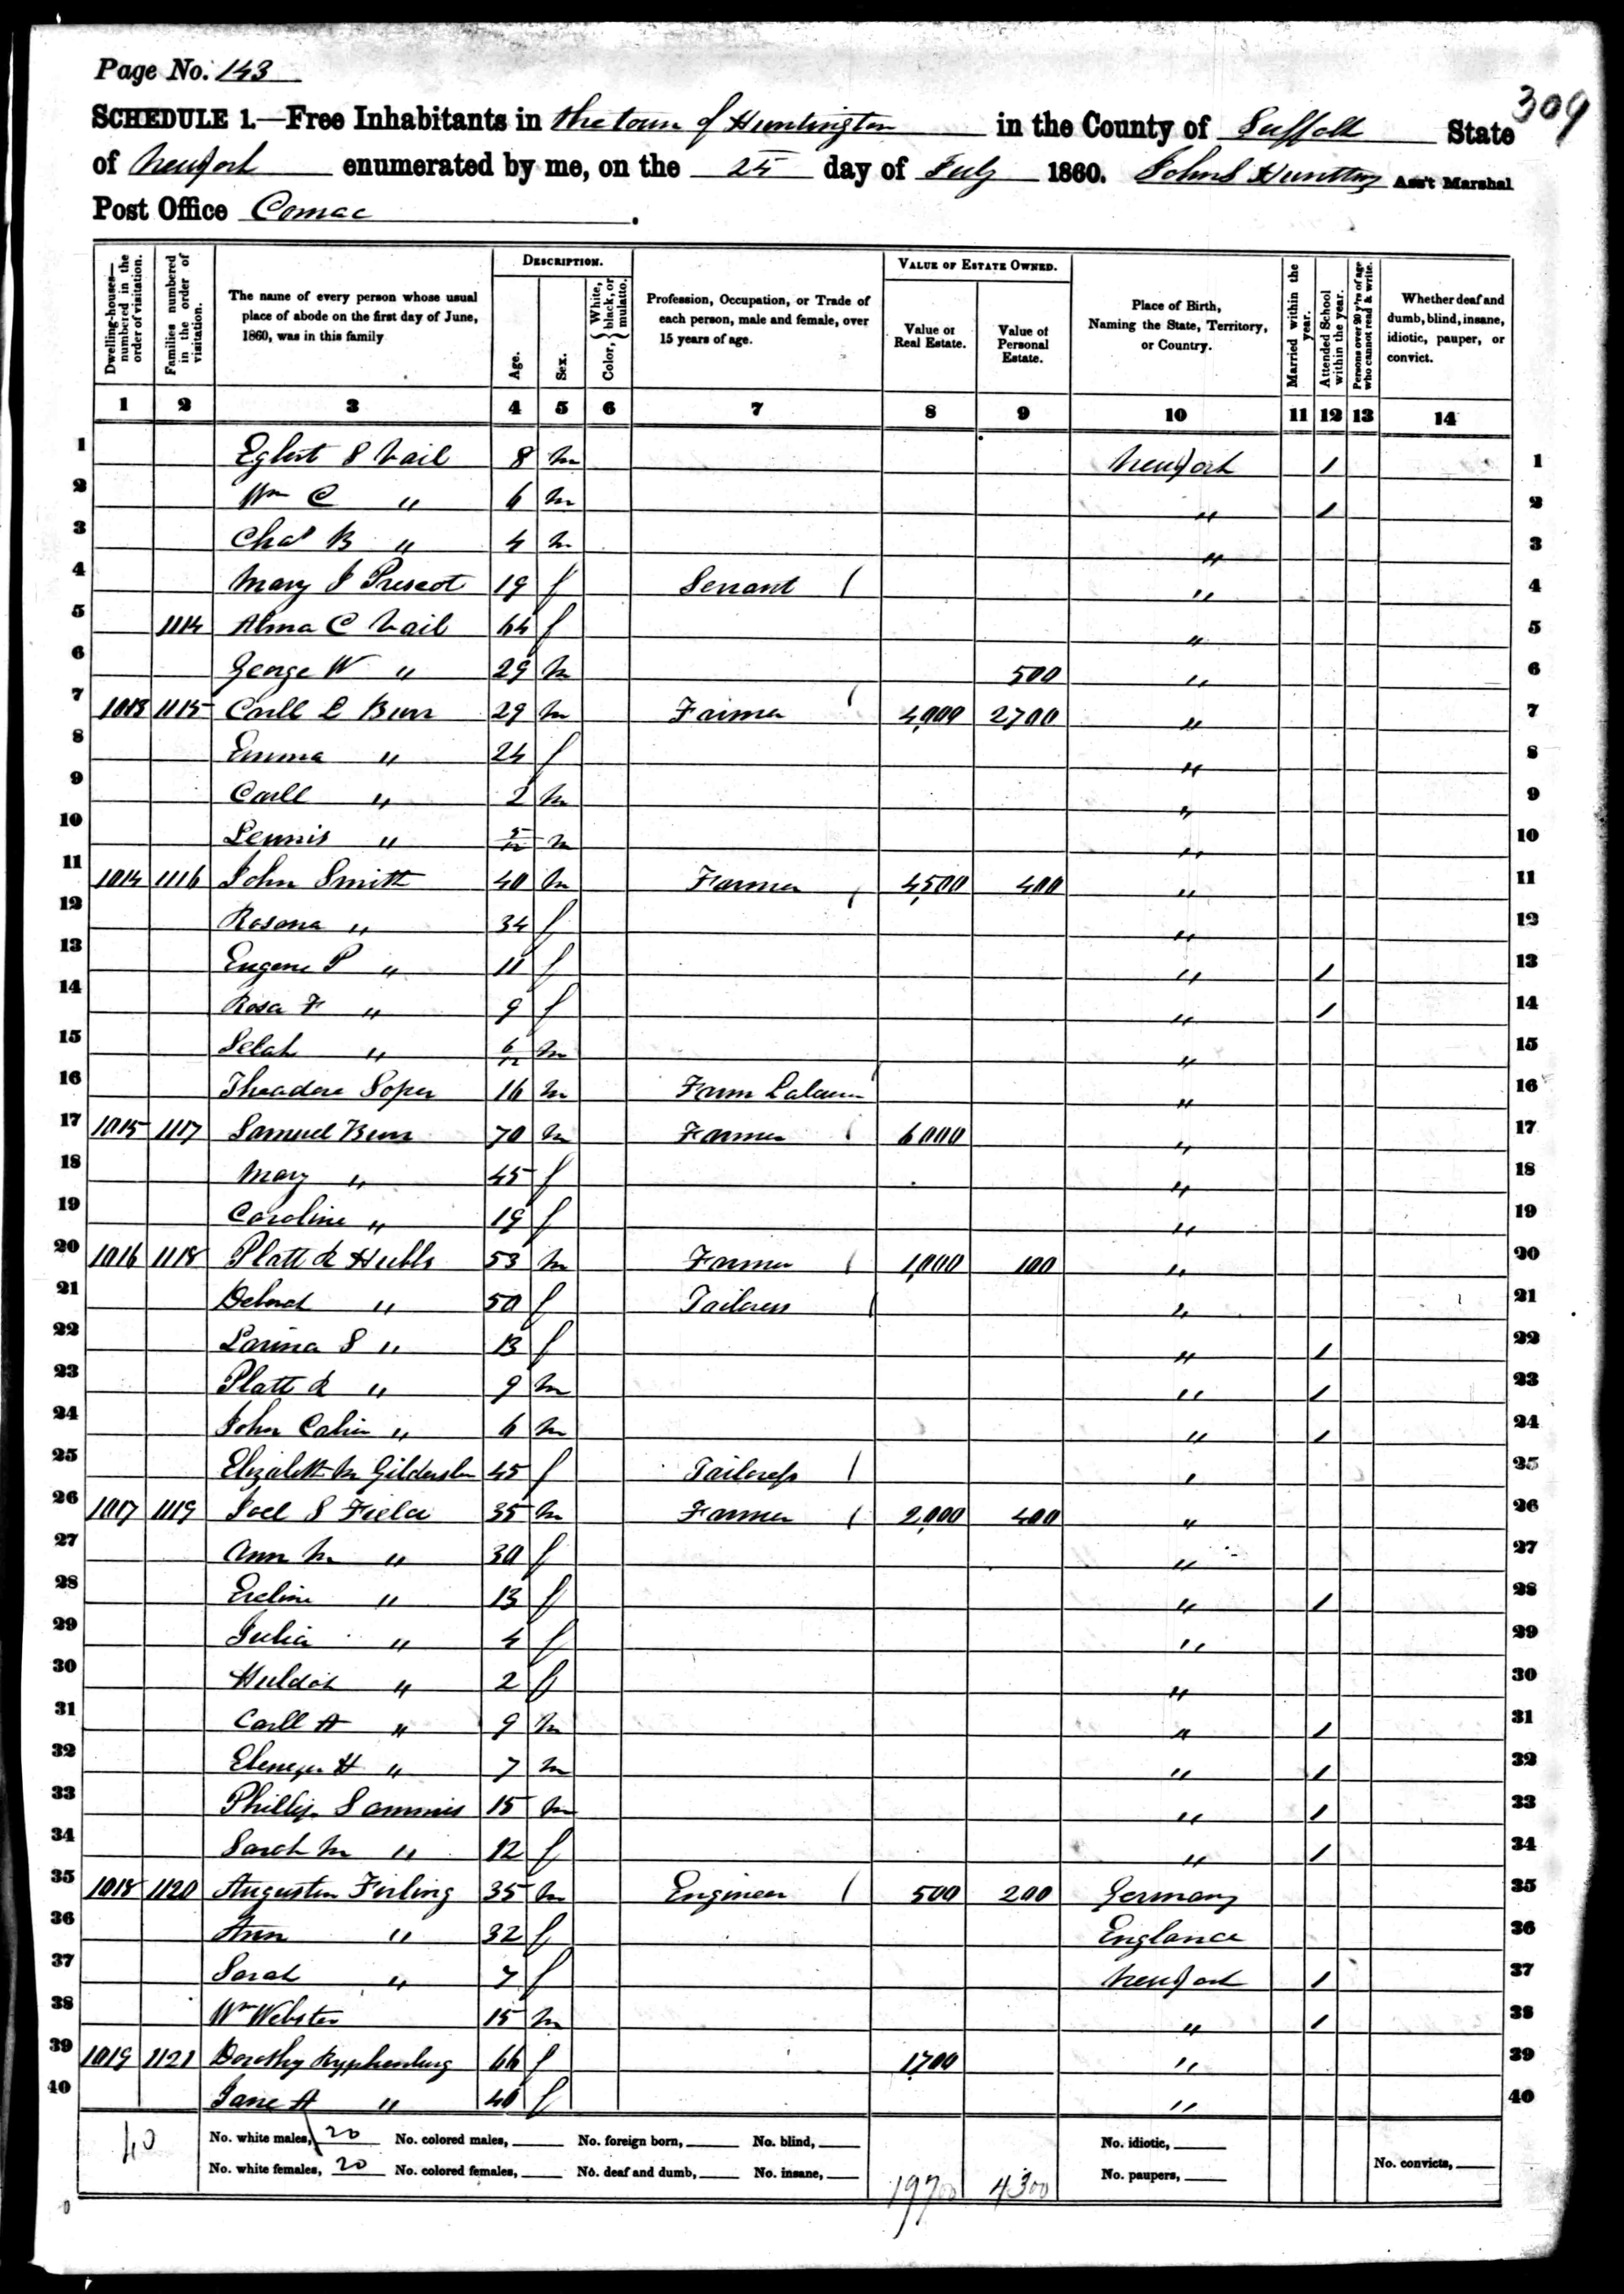 Page No. 143
309
SCHEDULE 1.—Free Inhabitants in the town of Huntington in the County of Suffolk State
of New York enumerated by me, on the 25 day of July 1860. John S Huntting Ass't Marshal
Post Office Comac.
Dwelling-houses—numbered in the order of visitation. Families numbered in the order of visitation. The name of every person whose usual place of abode on the first day of June, 1860, was in this family DESCRIPTION. Age. Sex. Color, { White, black, or mulatto. Profession, Occupation, or Trade of each person, male and female, over 15 years of age. VALUE OF ESTATE OWNED. Value of Real Estate. Value of Personal Estate. Place of Birth, Naming the State, Territory, or Country. Married within the year. Attended School within the year. Persons over 20 y'rs of age who cannot read & write. Whether deaf and dumb, blind, insane, idiotic, pauper, or convict.
1 2 3 4 5 6 7 8 9 10 11 12 13 14
1 Egbert S Vail 8 m New York / 1
2 Wm C " 6 m " / 2
3 Chas B " 4 m " 3
4 Mary J Prescot 19 f Servant " 4
5 1114 Alma C Vail 64 f " 5
6 George W " 29 m 500 " 6
7 1013 1115 Carll S Burr 29 m Farmer 4,000 2700 " 7
8 Emma " 24 f " 8
9 Carll " 2 m " 9
10 " 5/12 m " 10
11 1014 1116 John Smith 40 m Farmer 4,500 400 " 11
12 Rosana " 34 f " 12
13 Eugene P " 11 f " / 13
14 Rosa F " 9 f " / 14
15 Selah " 6/12 m " 15
16 Theadore Soper 16 m Farm Laborer " 16
17 1015 1117 Samuel Burr 70 m Farmer 6000 " 17
18 Mary " 45 f " 18
19 Caroline " 19 f " 19
20 1016 1118 Platt R Hubbs 53 m Farmer 1,000 100 " 20
21 Deborah " 50 f Tailoress " 21
22 S " 13 f " / 22
23 Platt R " 9 m " / 23
24 John Calvin " 6 m " / 24
25 Elizabeth M Gildersleve 45 f Tailoress " 25
26 1017 1119 Joel S Field 35 m Farmer 2,000 400 " 26
27 Ann M " 30 f " 27
28 Eveline " 13 f " / 28
29 Julia " 4 f " 29
30 Huldah " 2 f " 30
31 Carll A " 9 m " / 31
32 Ebenezer H " 7 m " / 32
33 Phillip Sammis 15 m " / 33
34 Sarah M " 12 f " / 34
35 1018 1120 Augustus Firling 35 m Engineer 500 200 Germany 35
36 Ann " 32 f England 36
37 Sarah " 7 f New York / 37
38 Wm Webster 15 m " / 38
39 1019 1121 Dorothy Ryphenburg 66 f 1,700 " 39
40 Jane A " 40 f " 40
40 No. white males, 20 No. colored males, No. foreign born, No. blind, No. idiotic,
No. white females, 20 No. colored females, No. deaf and dumb, No. insane, 19700 4300 No. paupers, No. convicts,